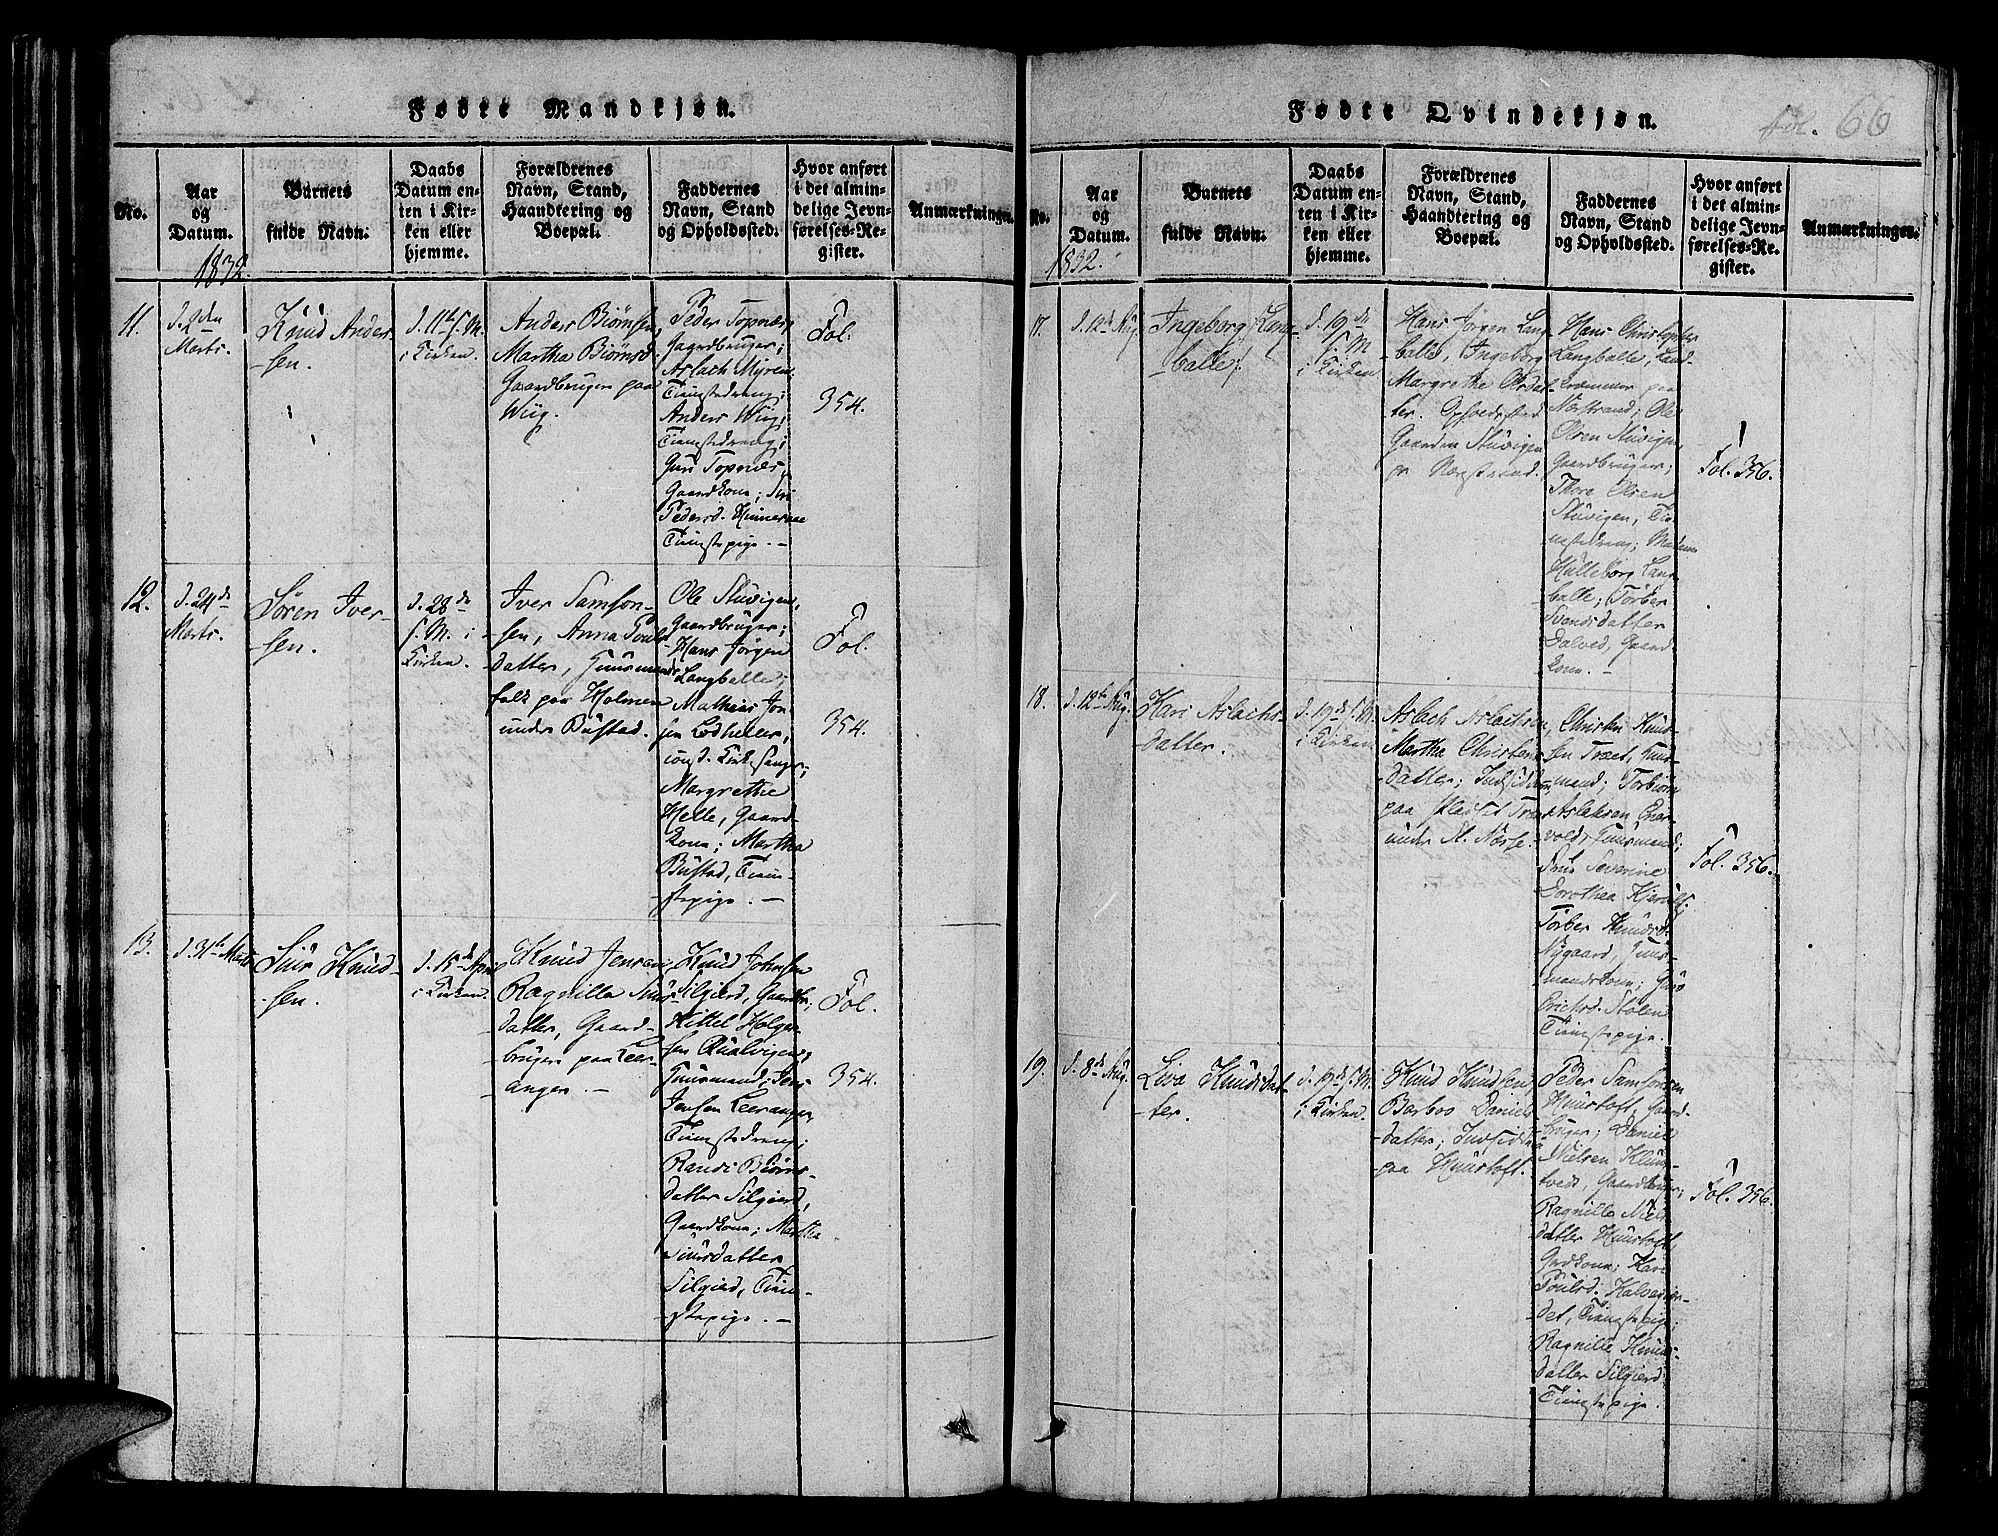 Fødte Mandkjøn.
No.
Aar
og
Datum.
Barnets
fulde Navn.
Daabs
Datum en-
ten i Kir-
ken eller
hjemme.
Forældrenes
Navn, Stand,
Haandtering og
Boepæl.
Faddernes
Navn, Stand
og Opholdssted.
Hvor anført
i det almin-
delige Jevn-
førelses-Re-
gister.
Anmærkninger.
1832.
11.
d. 2den
Marts.
Knud Ander-
sen.
d. 11te f. M.
i Kirken.
Anders Biørnsen,
Martha Biørnsd.
Gaardbruger paa
Wiig.
Peder Topnæs,
Gaardbruger;
Aslach Myren
Tienestedreng;
Anders Wiig,
Tienestedreng;
Guri Topnæs,
Gaardkone; Siri
Pedersd. Hinneraae
Tienestepige. —
Fol.
354.
12.
d. 24de
Marts.
Søren Iver-
sen.
d. 28de
f. M. i
Kirken.
Iver Samson-
sen, Anna Pouls-
datter, Huusmands-
folk paa Holmen
under Bustad.
Ole Stuvigen,
Gaardbruger;
Hans Jørgen
Langballe;
Mathias Jon-
sen Lodhelle,
const. Kirkesanger;
Margrethe
Helle, Gaard-
kone; Martha
Bustad, Tiene-
stepige. —
Fol.
354.
13.
d. 31te Marts
Siur Knud-
sen.
d. 15de April
i Kirken.
Knud Jensen,
Ragnilla Siurs-
datter, Gaard-
bruger paa Leer-
anger. —
Knud Johnsen
Silgierd, Gaardbr.;
Kittel Holger-
sen Qualvigen,
Huusmand; Jens
Jensen Leeranger,
Tienestedreng;
Randi Biørns-
datter Silgierd,
Gaardkone; Martha
Siursdatter
Silgierd, Tiene-
stepige. —
Fol.
354.
Fødte Qvindekjøn.
fol. 66
No.
Aar
og
Datum.
Barnets
fulde Navn.
Daabs
Datum en-
ten i Kir-
ken eller
hjemme.
Forældrenes
Navn, Stand,
Haandtering og
Boepæl.
Faddernes
Navn, Stand
og Opholdssted.
Hvor anført
i det almin-
delige Jevn-
førelses-Re-
gister.
Anmærkninger.
1832.
17.
d. 12te Aug.
Ingeborg Lang-
balle.
d. 19de
f. M
i Kirken
Hans Jørgen Lang-
balle, Ingeborg
Margrethe Olsdat-
ter. Opholdssted
Gaarden Stuvigen
pr Nærstrand.
Hans Christopher
Langballe, Land-
kræmmer paa
Nærstrand; Ole
Olsen Stuvigen,
Gaardbruger;
Thore Olsen
Stuvigen, Tie-
nestedreng; Madame
Hulleborg Lang-
balle; Torber
Svendsdatter
Dalved, Gaard-
kone. —
Fol. 356.
18.
d. 12te Aug.
Kari Aslachs-
datter.
d. 19de f. M.
i Kirken
Aslach Aslachsen,
Martha Christens-
datter; Indsidder
paa Pladset Træet
under Nærse.
Christen Knud-
sen Træet, Huus-
mand; Torbiørn
Aslaksen
Huusmand;
Severine
Dorothea
Torber Knudsd.
Nygaard, Huus-
mandskone;
Erichsd. Stølen
Tienestepige.
Fol. 356.
19.
d. 8de Aug.
Lisa Knudsdat-
ter.
d. 19de f. M.
i Kirken.
Knud Knudsen,
Barbro Daniels-
datter; Indsidder
paa Huustoft.
Peder Samsonsen
Huustoft, Gaard-
bruger; Daniel
Nielsen
Gaardbruger;
Ragnille Niels-
datter Huustoft,
Grdkone; Kari
Poulsd.
Tienestepige;
Ragnille Knuds-
datter Silgierd
Tienestepige.
Fol. 356.